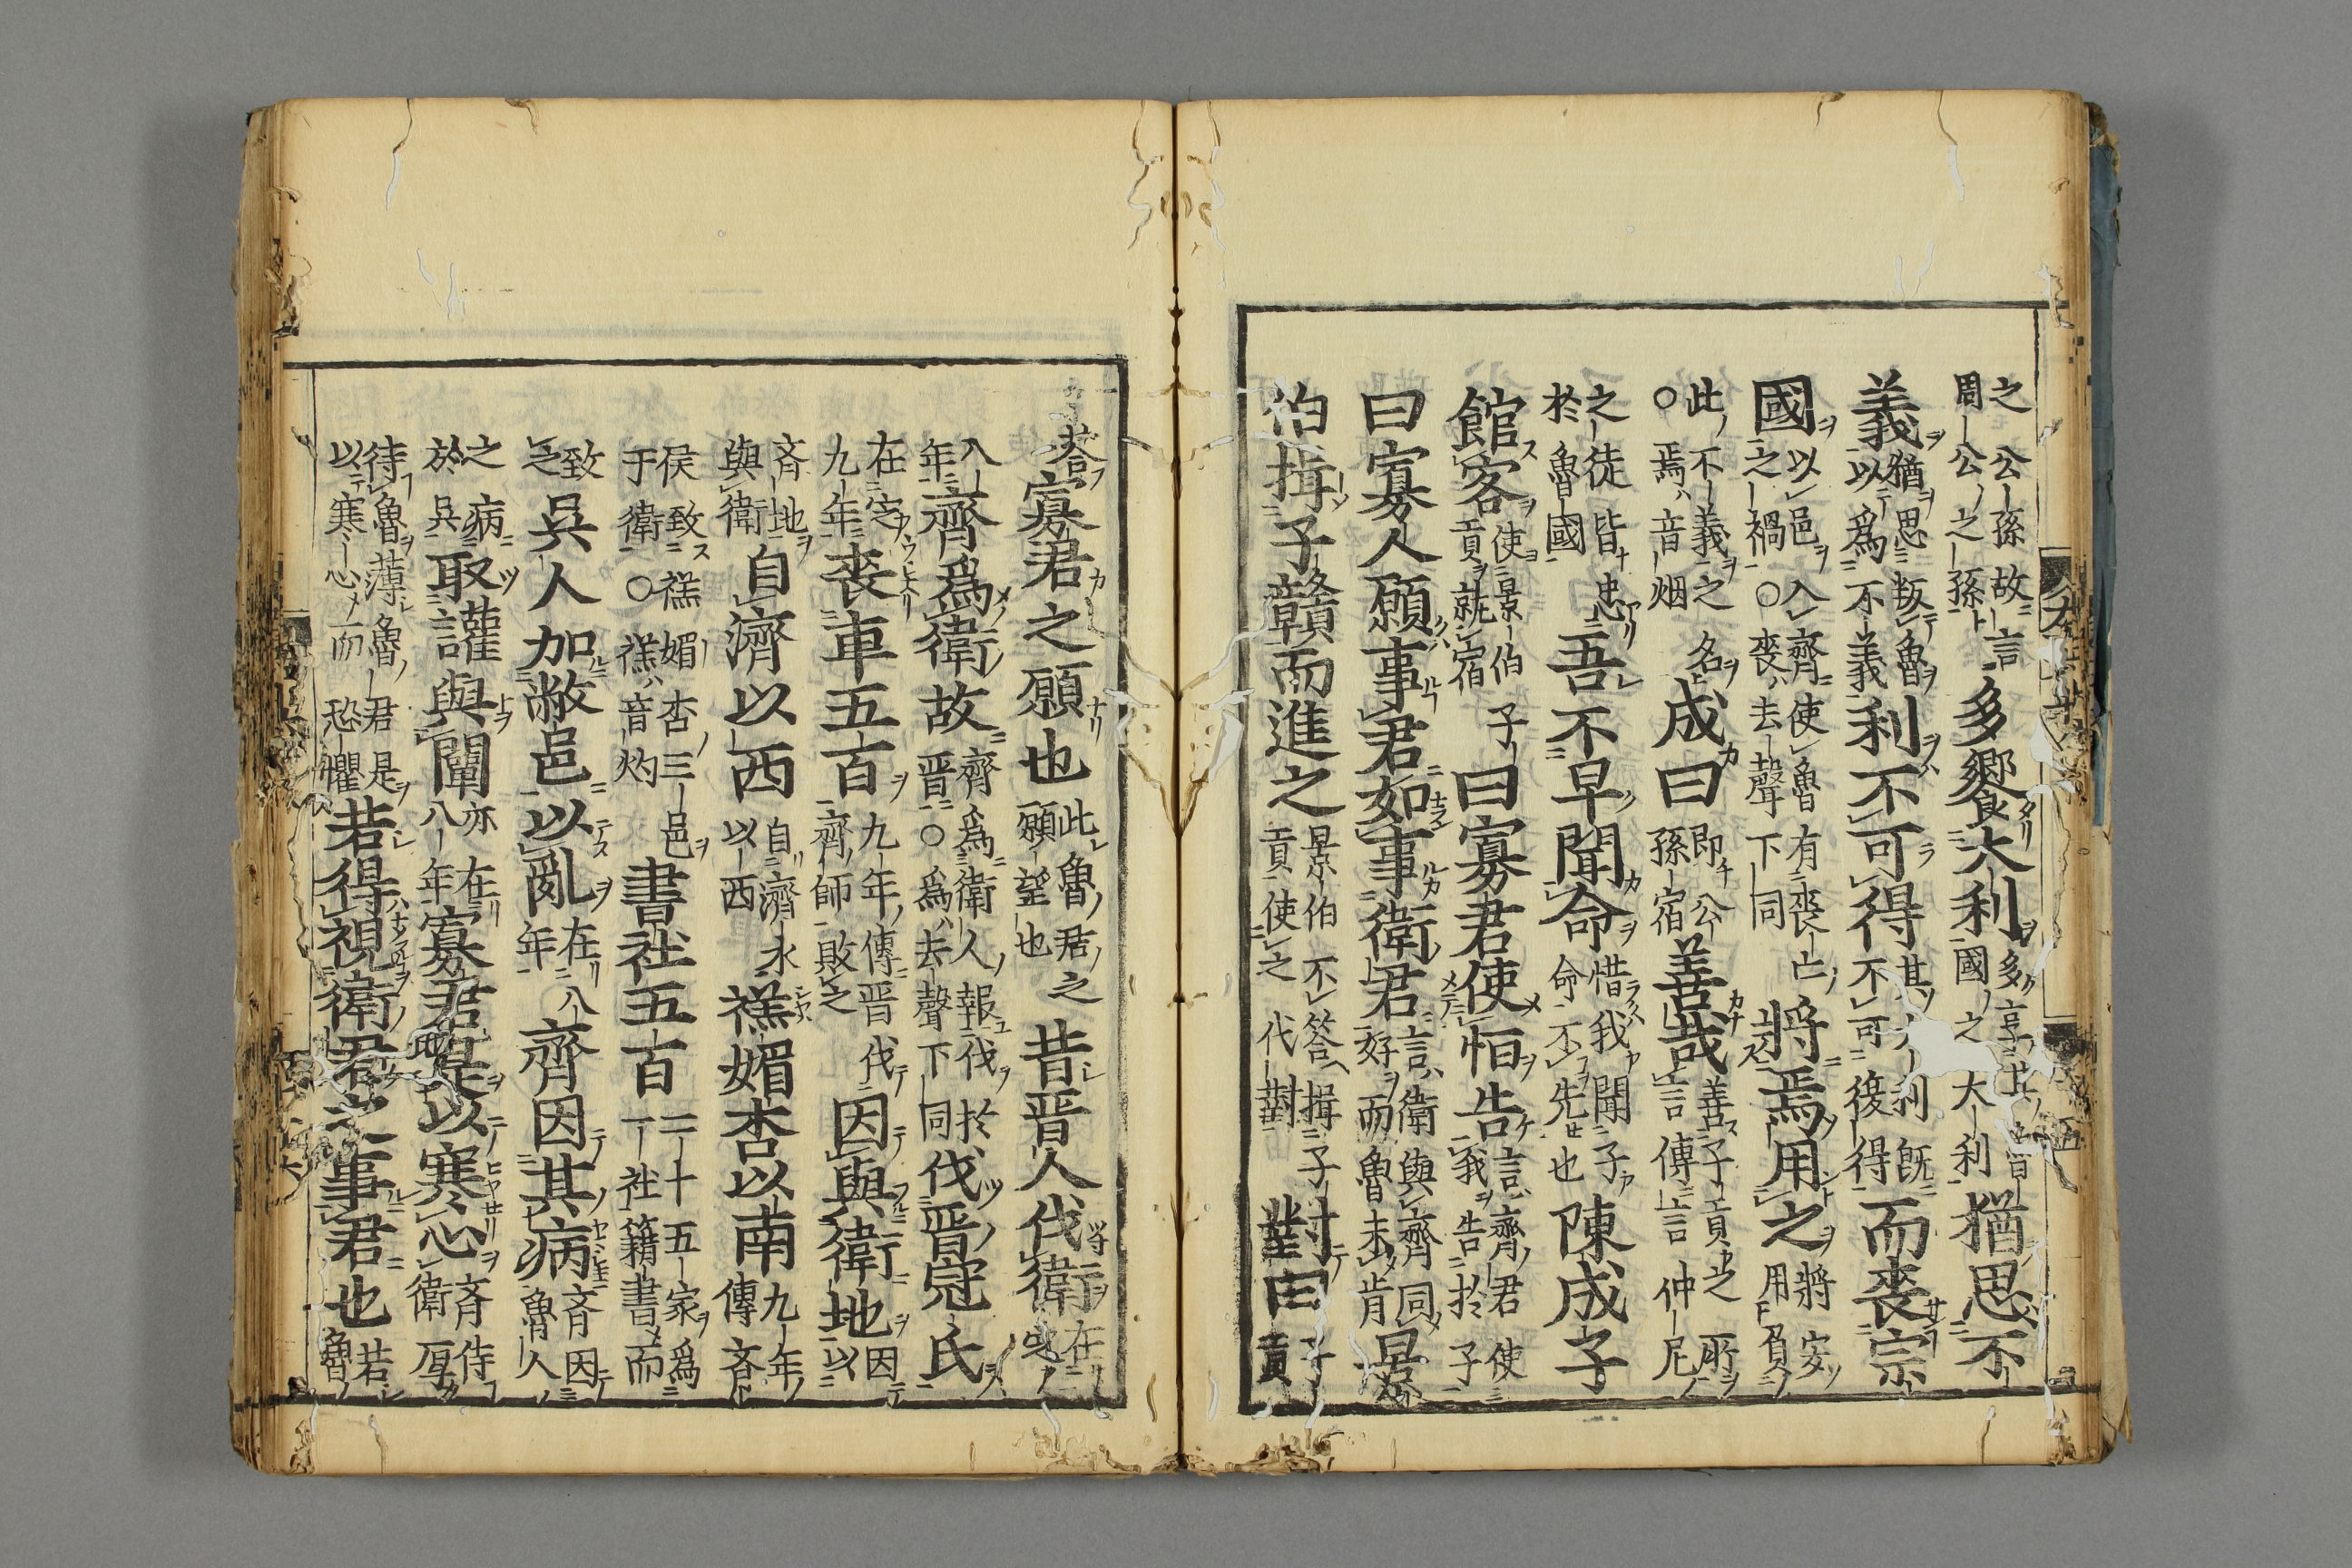 之公孫故言周公之孫多饗大利多享其國之大利猶思不
義猶思叛魯以爲不義利不可得其大利既不可後得而喪宗
國以邑入齊使魯有喪亡之禍○喪去聲下同將焉用之將安用負
此不義之名○焉音烟成曰即公孫宿善哉善子貢之所言傳言仲尼
之徒皆忠於魯國吾不早聞命惜我聞子命不先也陳成子
館客使景伯子貢就宿曰寡君使恒告言齊君使我告於子
曰寡人願事君如事衛君言衛與齊同好而魯未肯景
伯揖子贛而進之景伯不答揖子貢使之代對對曰子貢
荅寡君之願也此魯君之願望也昔晉人伐衛在定
八年齊爲衛故齊爲衛人報伐於晉○爲去聲下同伐晉冠氏
在定九年喪車五百九年傳晉伐齊師敗之因與衛地因以
齊地與衛自濟以西自濟水以西禚媚杏以南九年傳齊
侯致禚媚杏三邑于衛○禚音灼書社五百二十五家爲一社籍書而
致之吳人加敝邑以亂在八年齊因其病齊因魯人
之病於吳取讙與闡亦在八年寡君是以寒心齊侍衛厚
待魯薄魯君是以寒心而恐懼若得視衛君之事君也若魯